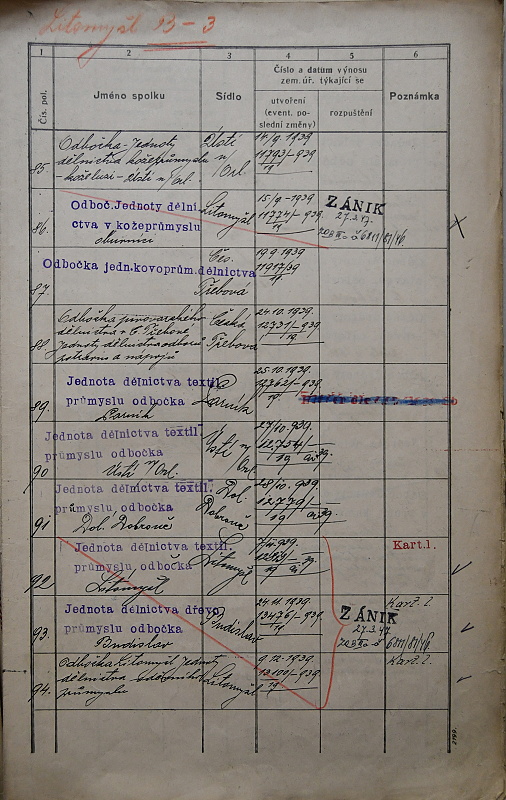 Litomyšl 93 - 3
1 2 3 4 5 6
Čís. pol.
Jméno spolku
Sídlo
Číslo a datum výnosu
zem. úř. týkající se
utvoření
(event. po-
slední změny)
rozpuštění
Poznámka
85.
Odbočka Jednoty
dělnictva kožeprůmyslu
Ústí n/ Orl.
Ústí
n/
Orl.
14/9 1939
11793/-939
19
86.
Odboč.Jednoty dělni
ctva v kožeprůmyslu
obuvníci
Litomyšl
15/9 -1939
11774/- 939
19
ZÁNIK
27.3.47.
87.
Odbočka jedn.kovoprům.dělnictva
Čes.
Třebová
19.9.1939
11917/39
88.
Odbočka pivovarského
dělnictva v Č. Třebové
Jednoty dělnictva
potravin a nápojů
Česká
Třebová
24.10.1939.
12731/-939
19
89.
Jednota dělnictva textil.
průmyslu odbočka
Parník
Parník
25.10.1939.
12762/-939
19
90
Jednota dělnictva textil.
průmyslu odbočka
Ústí n/Orl.
Ústí n
/Orl.
27/10.939.
12754/-
19
91
Jednota dělnictva textil.
průmyslu, odbočka
Dol. Dobrouč
Dol.
Dobrouč
28/10.939.
12779/-
19
92
Jednota dělnictva textil.
průmyslu, odbočka
Litomyšl
Litomyšl
19
Kart.1.
93.
Jednota dělnictva dřevo
průmyslu odbočka
Budislav
Budislav
24.11.1939.
13476/-939.
19
ZÁNIK
27.3.47
6811/81/46.
Kart. 1.
94.
Odbočka Litomyšl Jednoty
dělnictva
průmyslu
Litomyšl
9.12.1939.
13100/-939
19
Kart. 1.